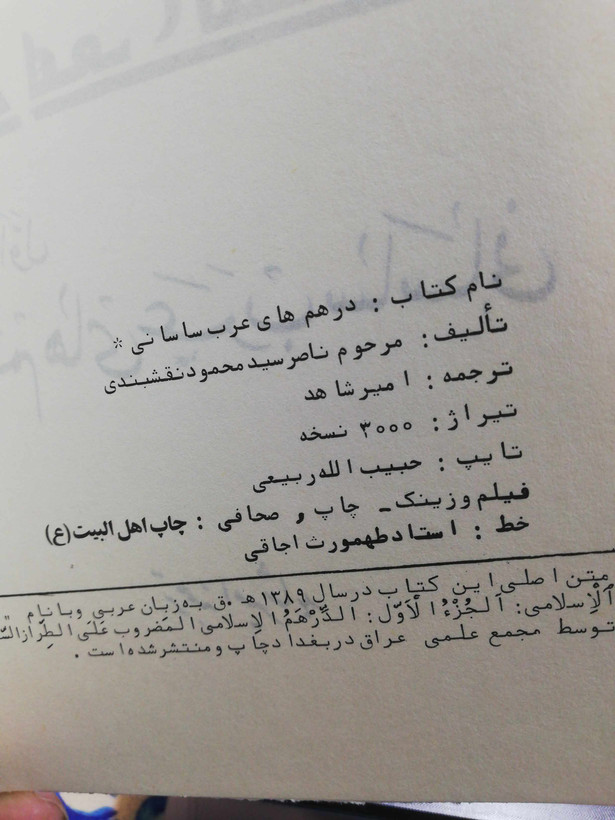 نام کتاب : درهم های عرب ساسانی *
تألیف: مرحوم ناصر سید محمود نقشبندی
ترجمه : امیر شاهد
تیراژ : ۳۰۰۰ نسخه
تایپ : حبیب الله ربیعی
فیلم و زینک ـ چاپ و صحافی : چاپ اهل البیت (ع)
خط : استاد طهمورث اجاقی
متن اصلی این کتاب در سال ۱۳۸۹ هـ .ق به زبان عربی و با نام
اَلْإسلامی: اَلجُزْءُ الْاَوّل : الدِّرْهَمُ الإسلامی المَضروب عَلَی الطِّراز
توسط مجمع علمی عراق در بغداد چاپ و منتشر شده است .